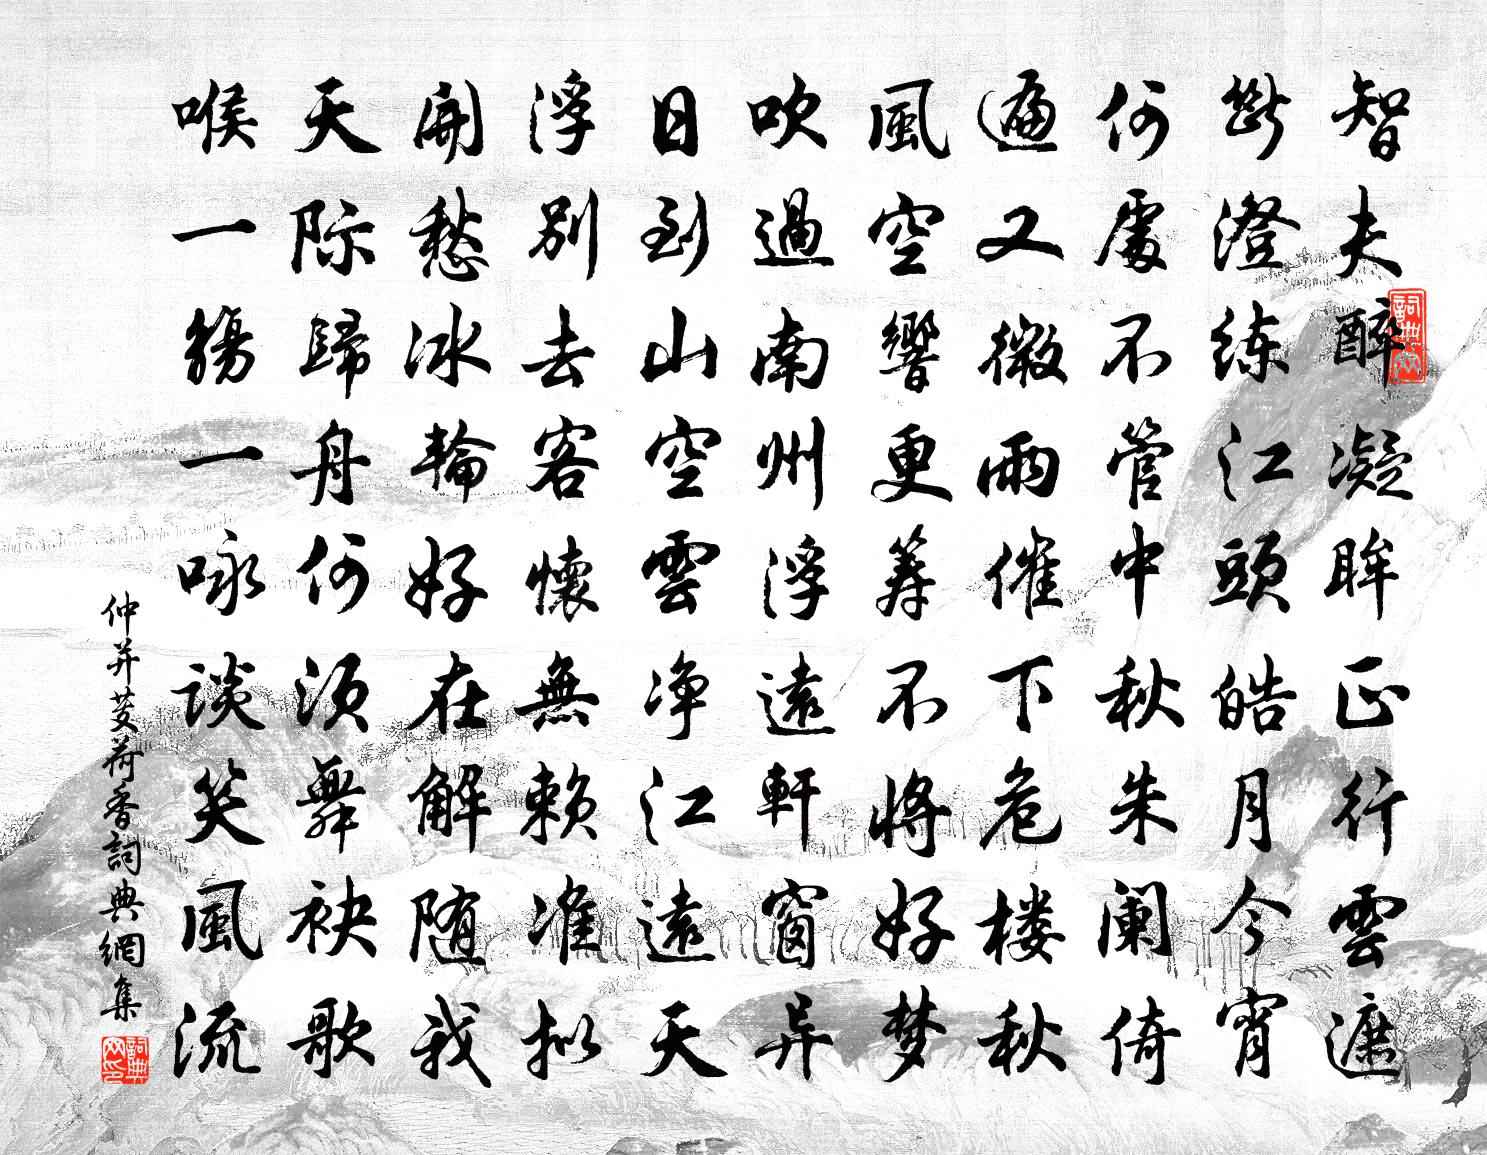 智夫醉凝眸正行雲遮
斷澄练江頭皓月今宵
何處不管中秋朱阑倚
遍又微雨催下危楼秋
風空響更筹不將好梦
吹過南州浮遠軒窗异
日到山空雲净江遠天
浮别去客懷無赖准拟
開愁冰輪好在解随我
天际歸舟何须舞袂歌
喉一觞一咏谈笑風流
仲并芰荷香詞典網集
詞典网
詞典网印